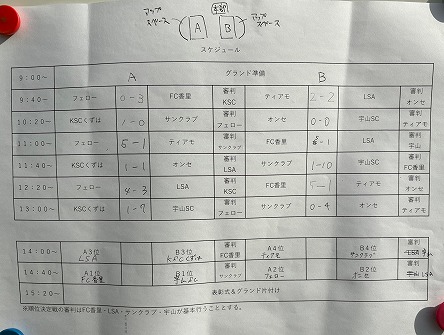 本部
アップスペース ( A B ) アップスペース
スケジュール
A B
9:00～ グランド準備
9:40～ フェロー 0-3 FC香里 審判 KSC ティアモ 2-2 LSA 審判 オンセ
10:20～ KSCくずは 1-0 サンクラブ 審判 フェロー オンセ 0-0 宇山SC 審判 ティアモ
11:00～ フェロー 5-1 ティアモ 審判 サンクラブ FC香里 -1 LSA 審判 宇山
11:40～ KSCくずは 1-1 オンセ 審判 LSA サンクラブ 1-10 宇山SC 審判 FC香里
12:20～ フェロー 4-3 LSA 審判 KSC FC香里 5-1 ティアモ 審判 オンセ
13:00～ KSCくずは 1-7 宇山SC 審判 フェロー サンクラブ 0-4 オンセ 審判 ティアモ
14:00～ A3位 LSA B3位 KSCくずは 審判 FC香里 A4位 ティアモ B4位 サンクラブ 審判 宇山
14:40～ A1位 FC香里 B1位 宇山SC 審判 サンクラブ A2位 フェロー B2位 オンセ 審判 LSA
15:20～ 表彰式＆グランド片付け
※順位決定戦の審判はFC香里・LSA・サンクラブ・宇山が基本行うこととする。